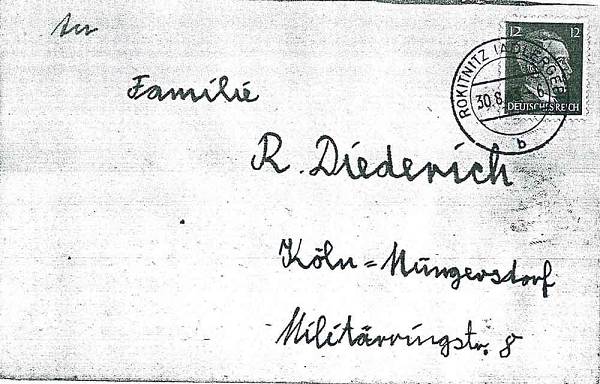 An
Familie
R. Diederich
Köln=Müngersdorf
Militärringstr. 8
12 12
DEUTSCHES REICH
ROKITNITZ (ADLERGEB
30.8.
b